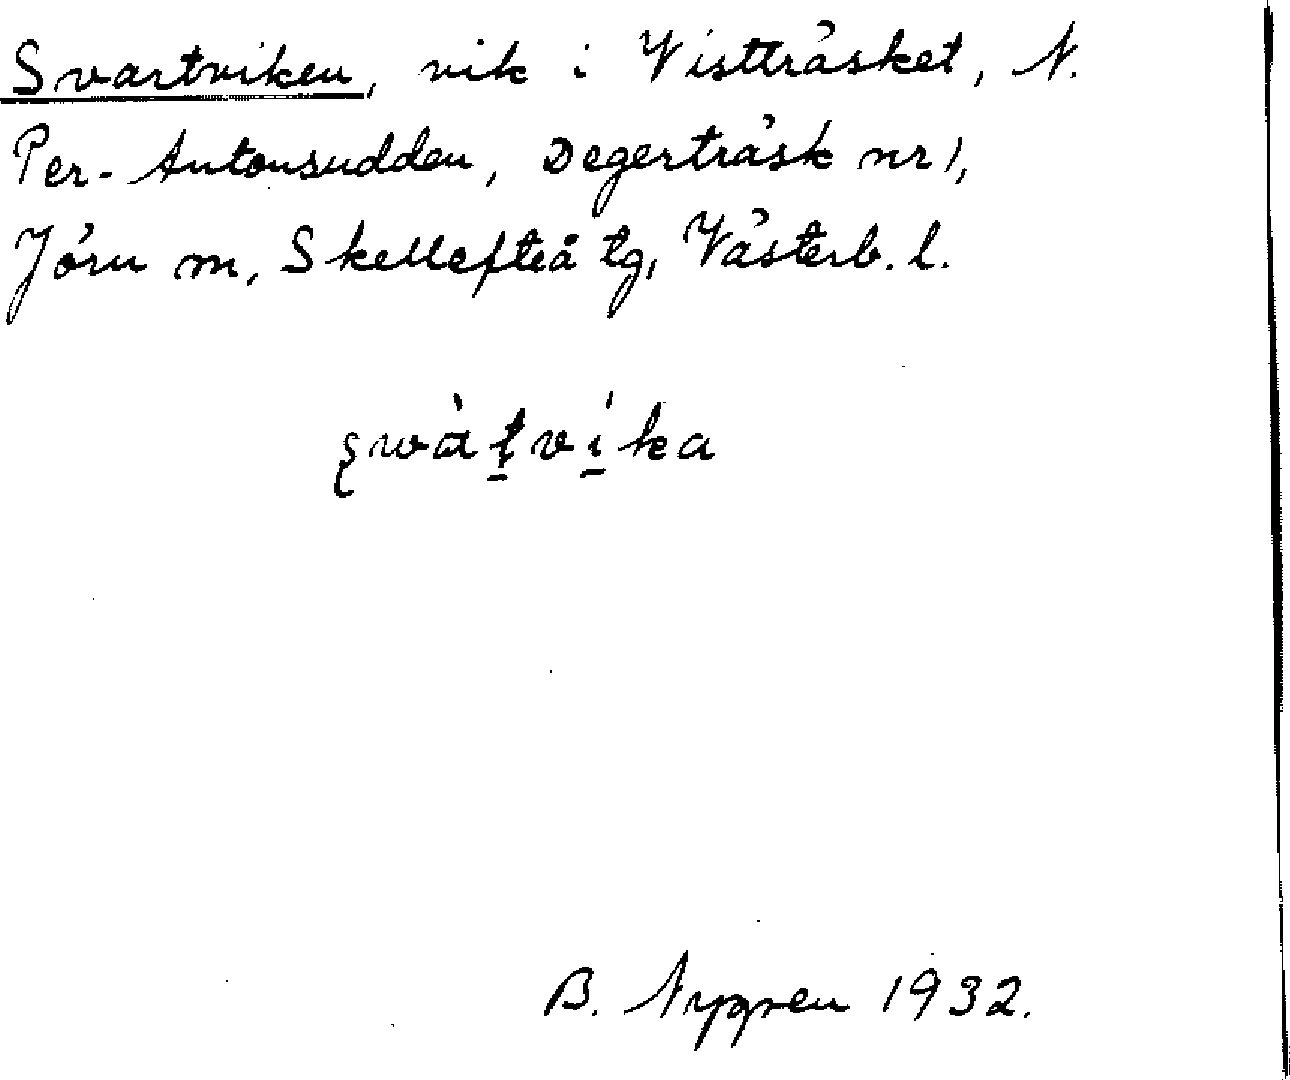 Svartviken, vik i Vistträsket, N.
Per-Antonsudden, Degerträsk nr 1,
Jörn sn, Skellefteå tg, Västerb. l.
B. Nygren 1932.